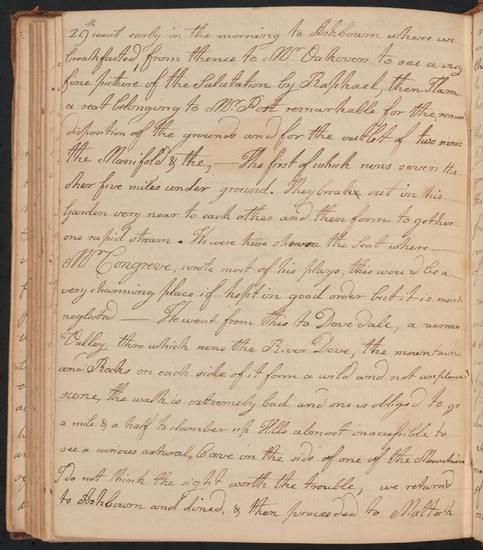 29th went early in the morning to Ashbourn where we
breakfasted, from thence to Mr Oakover to see a very
fine picture of the Salutation by Raphael, then Ilam
a seat belonging to Mr Port remarkable for the
disposition of the grounds and for the outlet of two rivers
the Manifold & the, — The first of which runs seven the
other five miles under ground. They break out in his
Garden very near to each other and then form to gether
one rapid stream. We were here shown the Seat where
Mr Congreve, wrote most of his plays, this wou'd be a
very charming place if kept in good order but it is much
neglected — We went from this to Dove dale, a narrow
Valley, thro which runs the River Dove, the mountains
and Rocks on each side of it form a wild and not unpleasant
scene, the walk is extremely bad and one is obliged to go
a mile & a half to clamber up Hills almost inaccessible to
see a curious natural Cave in the side of one of the Mountains
I do not think the sight worth the trouble, we return'd
to Ashbourn and dined, & then proceeded to Matlock